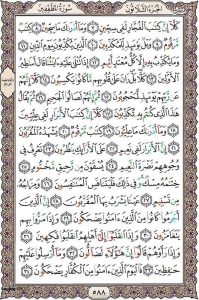 سُورَةُ المُطَفِّفِينَ
الجُزْءُ الثَّلَاثُونَ
كَلَّآ إِنَّ كِتَٰبَ ٱلْفُجَّارِ لَفِى سِجِّينٍ ٧ وَمَآ أَدْرَىٰكَ مَا سِجِّينٌ ٨ كِتَٰبٌ
مَّرْقُومٌ ٩ وَيْلٌ يَوْمَئِذٍ لِّلْمُكَذِّبِينَ ١٠ ٱلَّذِينَ يُكَذِّبُونَ بِيَوْمِ ٱلدِّينِ ١١
وَمَا يُكَذِّبُ بِهِۦٓ إِلَّا كُلُّ مُعْتَدٍ أَثِيمٍ ١٢ إِذَا تُتْلَىٰ عَلَيْهِ ءَايَٰتُنَا قَالَ أَسَٰطِيرُ
ٱلْأَوَّلِينَ ١٣ كَلَّا بَلْ رَانَ عَلَىٰ قُلُوبِهِم مَّا كَانُوا۟ يَكْسِبُونَ ١٤ كَلَّآ إِنَّهُمْ
عَن رَّبِّهِمْ يَوْمَئِذٍ لَّمَحْجُوبُونَ ١٥ ثُمَّ إِنَّهُمْ لَصَالُوا۟ ٱلْجَحِيمِ ١٦ ثُمَّ يُقَالُ
هَٰذَا ٱلَّذِى كُنتُم بِهِۦ تُكَذِّبُونَ ١٧ كَلَّآ إِنَّ كِتَٰبَ ٱلْأَبْرَارِ لَفِى عِلِّيِّينَ
١٨ وَمَآ أَدْرَىٰكَ مَا عِلِّيُّونَ ١٩ كِتَٰبٌ مَّرْقُومٌ ٢٠ يَشْهَدُهُ ٱلْمُقَرَّبُونَ
٢١ إِنَّ ٱلْأَبْرَارَ لَفِى نَعِيمٍ ٢٢ عَلَى ٱلْأَرَآئِكِ يَنظُرُونَ ٢٣ تَعْرِفُ فِى
وُجُوهِهِمْ نَضْرَةَ ٱلنَّعِيمِ ٢٤ يُسْقَوْنَ مِن رَّحِيقٍ مَّخْتُومٍ ٢٥
خِتَٰمُهُۥ مِسْكٌ وَفِى ذَٰلِكَ فَلْيَتَنَافَسِ ٱلْمُتَنَٰفِسُونَ ٢٦ وَمِزَاجُهُۥ مِن
تَسْنِيمٍ ٢٧ عَيْنًا يَشْرَبُ بِهَا ٱلْمُقَرَّبُونَ ٢٨ إِنَّ ٱلَّذِينَ
أَجْرَمُوا۟ كَانُوا۟ مِنَ ٱلَّذِينَ ءَامَنُوا۟ يَضْحَكُونَ ٢٩ وَإِذَا مَرُّوا۟ بِهِمْ
يَتَغَامَزُونَ ٣٠ وَإِذَا ٱنقَلَبُوٓا۟ إِلَىٰٓ أَهْلِهِمُ ٱنقَلَبُوا۟ فَكِهِينَ ٣١
وَإِذَا رَأَوْهُمْ قَالُوٓا۟ إِنَّ هَٰٓؤُلَآءِ لَضَآلُّونَ ٣٢ وَمَآ أُرْسِلُوا۟ عَلَيْهِمْ
حَٰفِظِينَ ٣٣ فَٱلْيَوْمَ ٱلَّذِينَ ءَامَنُوا۟ مِنَ ٱلْكُفَّارِ يَضْحَكُونَ ٣٤
٥٨٨